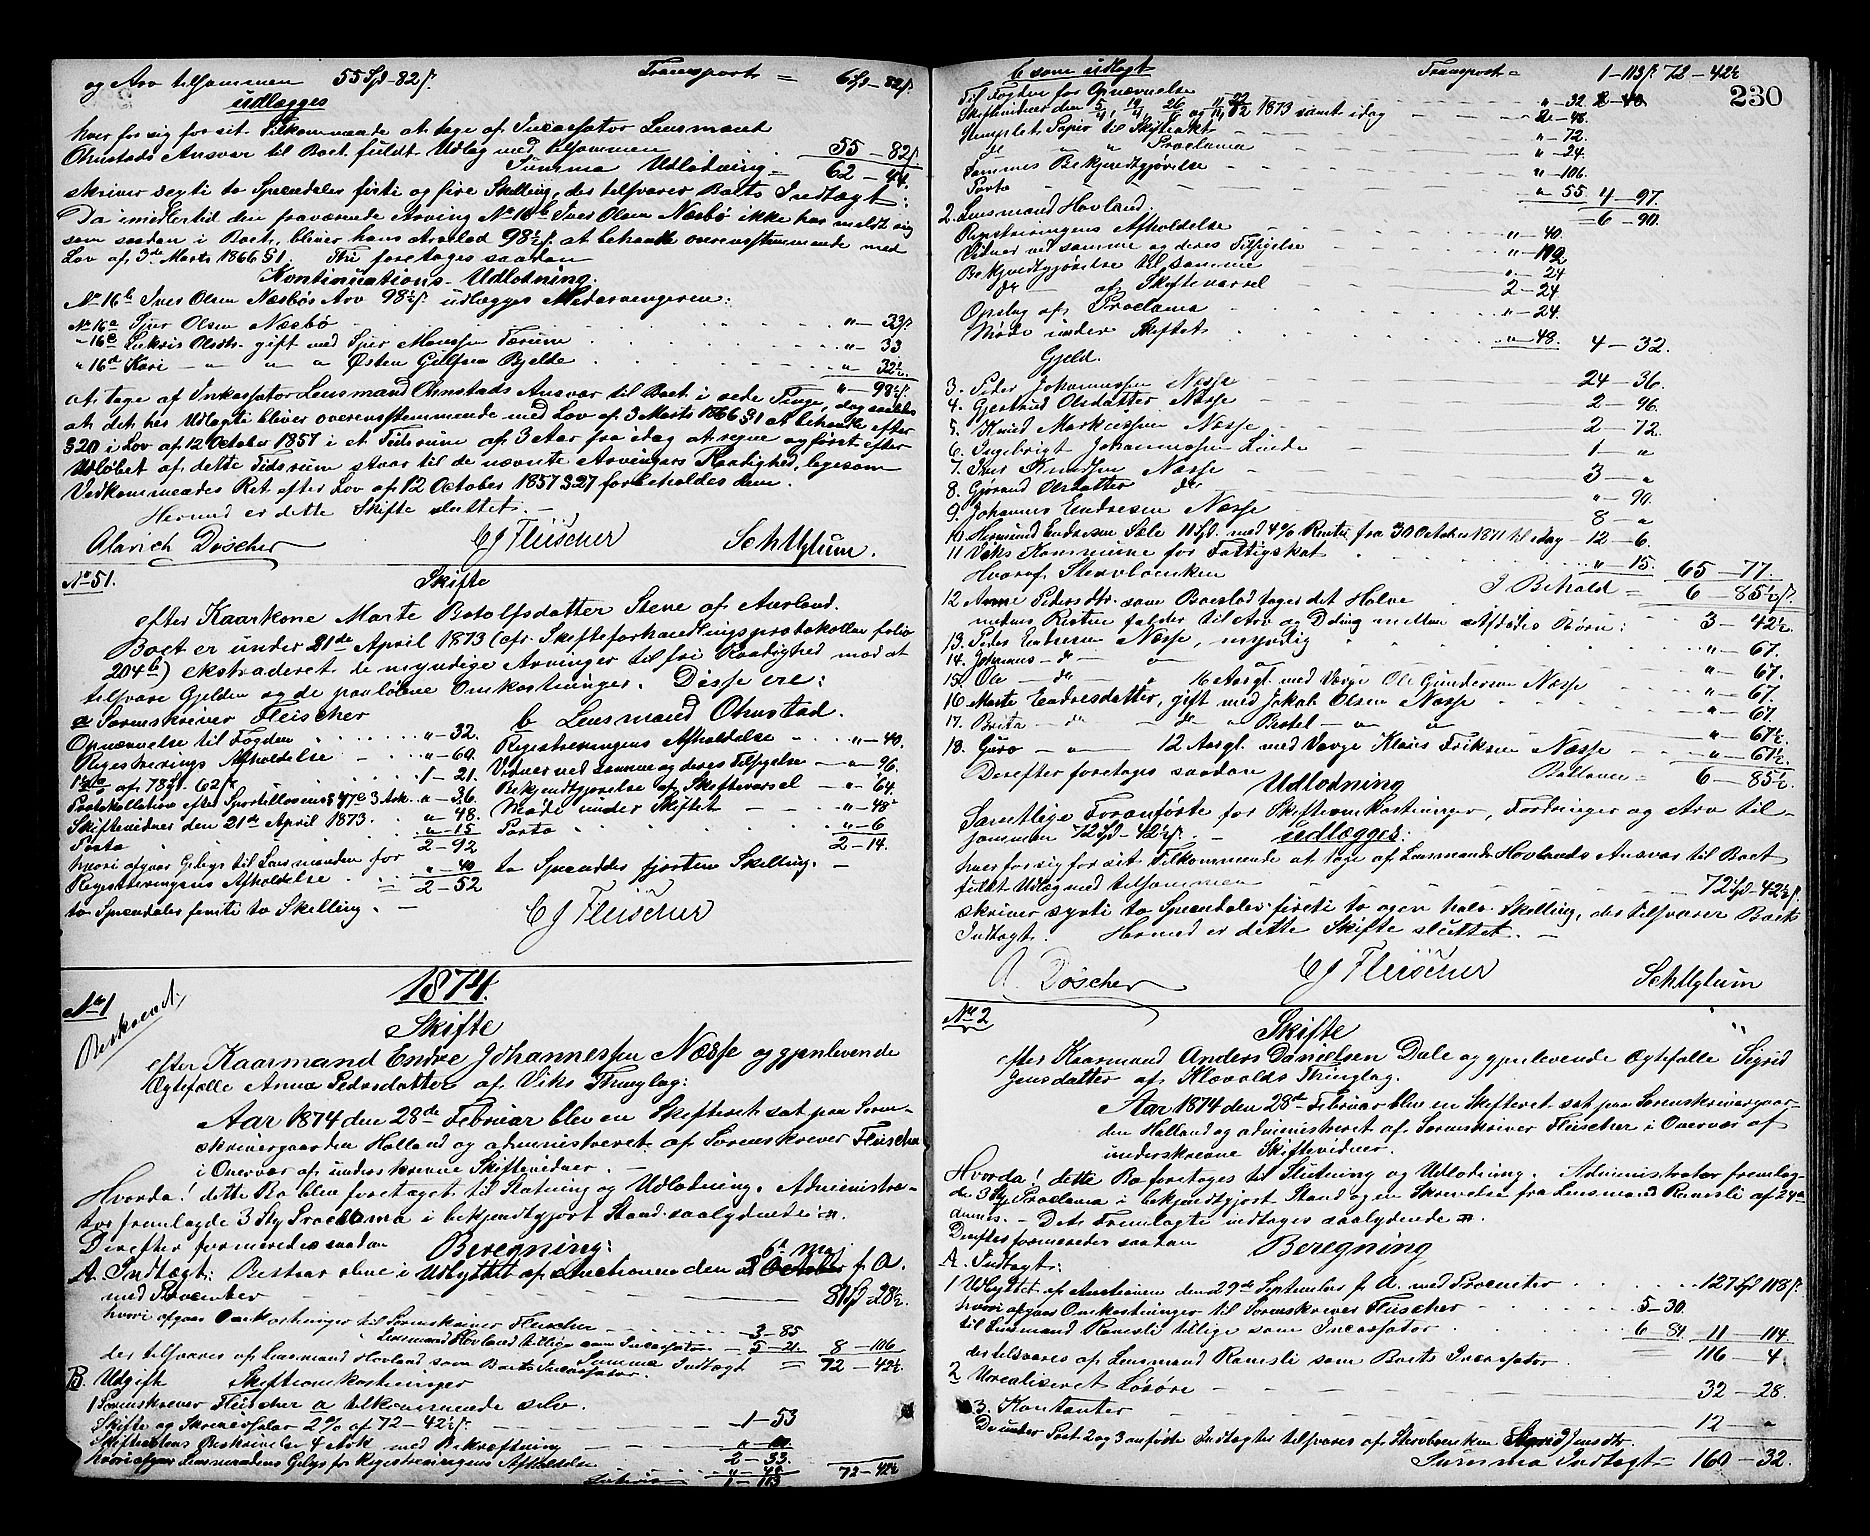 og Arv tilsammen 55 Spd - 82 ß. Transport = 6 Spd - 82 ß.
udlægges
hver for sig for sit Tilkommende at tage af Incassator Lensmand
Ohnstads Ansvar til Boet fuldt Udlæg med tilsammen 55 - 82 ß.
Summa Udlodning = 62 - 44.
skriver segti to Spendaler firti og fire Skilling, der tilsvarer Boets Indtægt:
Da imedlertid den fraværende Arving No 16 b Iver Olsen Næsbø ikke har meldt sig
som saadan i Boet, bliver hans Arvelod 98½ ß. at behandle overensstemmende med
Lov af 3de Marts 1866 § 1. foretages saadan
Kontinuations-Udlodning.
No 16 b Iver Olsen Næsbøs Arv 98½ ß. udlægges Medarvingerne:
No 16 a Sjur Olsen Næsbø " - 33 ß
" 16 c Lukris Olsdtr. gift med Sjur Monssen Tærum " - 33
" 16 d Kari - " " Østen Gullsen Bjelde " - 32½
" - 98½ ß.
at tage af Inkassator Lensmand Ohnstads Ansvar til Boet i rede Penge, dog saaledes
at det her Udlagte bliver overensstemmende med Lov af 3 Marts 1866 § 1 at behandle efter
§ 20 i Lov af 12 October 1857 i et Tidsrum af 3 Aar fra idag at regne og først efter
Udløbet af dette Tidsrum staar til de nævnte Arvingers Raadighed, ligesom
Vedkommendes Ret efter Lov af 12 October 1857 § 27 forbeholdes dem.
Hermed er dette Skifte sluttet. -
Alarich Døscher CJ Fleischer
No 51. Skifte
efter Kaarkone Marte Botolfsdatter Stene af Aurland.
Boet er under 21de April 1873 (cfr. Skifteforhandlingsprotokollen folio
204 b) ekstraderet de myndige Arvinger til fri Raadighed mod at
tilsvare Gjelden og de paaløbne Omkostninger. Disse ere:
a Sorenskriver Fleischer b Lensmand Ohnstad.
Opnævnelse til Fogden " - 32. Registreringens Afholdelse " - 40.
Registrerings Afholdelse " - 60. Vidner ved samme og deres Tilsigelse " - 96.
af 78 Spd. 62 ß 1 - 21. Bekjendtgjørelse af Skiftevarsel " - 64.
Protokollation efter Sportellovens § 47 c 3 Ark " - 36. Møde under Skiftet " - 48
Skiftevidner den 21de April 1873. " - 48. Porto " - 6
Porto " - 15 2 - 14.
2 - 92
hvori afgaar Gebyr til Lensmanden for
Registreringens Afholdelse " - 40 to Spendaler fjorten Skilling. -
= 2 - 52
to Spendaler femti to Skilling. -
CJ Fleischer
1874.
No 1 Skifte
Beskrevet.
efter Kaarmand Endre Johannessen Næsse og gjenlevende
Ægtefælle Anna Pedersdatter af Viks Thinglag:
Aar 1874 den 28de Februar blev en Skifteret sat paa Soren-
skrivergaarden Holland og administreret af Sorenskriver Fleischer
i Overvær af underskrevne Skiftevidner. -
Hvorda! dette Bo blev foretaget til Slutning og Udlodning. Administra-
tor fremlagde 3 Stk Proclama i bekjendtgjort Stand saalydende:
Derefter formeredes saadan Beregning:
A. Indtægt: Bestaar alene i Udbyttet af Auctionen den f. A.
med Procenter 81 Spd - 28½.
hvori afgaar Omkostninger til Sorenskriver Fleischer 3 - 85
Lensmand Hovland tillige som Incassator 5 - 21. 8 - 106
der tilsvares af Lensmand Hovland som Boets Incassator. Summa Indtægt = 72 - 42½.
B. Udgift. Skifteomkostninger
1 Sorenskriver Fleischer a tilkommende selv.
Skifte og Skriversalær 2% af 72 - 42½ ß. 1 - 53
Skifteaktens Beskrivelse 4 Ark med Bekræftning
2 - 33.
hvori afgaar Lensmandens Gebyr for Registreringens Afholdelse " - 40
Lateris 1 - 113 72 - 42½
230
b som udlagt Transport = 1 - 113 ß. 72 - 42½
Til Fogden for Opnævnelse " - 32
Skiftevidner den 1873 samt idag 2 - 48.
Stemplet Papir til Skifteakt " - 72.
do " " Proclama " - 24.
Sammes Bekjendtgjørelse " - 106.
Porto " 55 4 - 97.
= 6 - 90.
2. Lensmand Hovland.
Registreringens Afholdelse " - 40.
Vidner ved samme og deres Tilsigelse
Bekjendtgjørelse til samme " - 24
do - af Skiftevarsel 2 - 24
Opslag af Proclama " - 24.
Møde under Skiftet " 48. 4 - 32.
Gjeld.
3. Peder Johannessen Næsse 24 - 36.
4. Gjertrud Olsdatter Næsse 2 - 96.
5. Knud Markussen Næsse 2 - 72.
6. Ingebrigt Johannessen Linde 1 - "
7. Iver Knudsen Næsse 3 - "
8. Gjørond Olsdatter do " - 90.
9. Johannes Endresen Næsse 8 - "
10 Hermund Endresen Sæle 11 Spd. med 4% Renter fra 30 October 1871 til idag 12 - 6.
11 Viks Kommune for Fattigskat " - 15. 65 - 77.
I Behold = 6 - 85½ ß.
Hvoraf Stervboenken
12 Anne Pedersdtr. som Boeslod tager det Halve 3 - 42½.
medens Resten falder til Arv og Deling mellem Afdødes Børn:
13. Peder Endresen Næsse, myndig " - 67.
14. Johannes - do - " " - 67.
15. Ole - do - 16 Aargl. med Værge Ole Gundersen Næsse " - 67.
16 Marte Endresdatter, gift med Jakob Olsen Næsse " - 67.
17. Brita - do - do " Bertel " - 67½
18. Guro - " 12 Aargl. med Værge Klaus Eriksen Næsse " - 67½
Balancer = 6 - 85½.
Derefter foretages saadan Udlodning
Samtlige Foranførte for Skifteomkostninger, Fordringer og Arv til-
sammen 72 Spd - 42½ ß. - udlægges:
hver for sig for sit Tilkommende at tage af Lensmand Hovlands Ansvar til Boet
fuldt Udlæg med tilsammen 72 Spd - 42½ ß.
skriver sytti to Spendaler firti to og en halv Skelling, der tilsvarer Boets
Indtægt. Hermed er dette Skifte sluttet. -
A. Døscher CJ Fleischer
No 2 Skifte
efter Kaarmand Anders Danielsen Dale og gjenlevende Ægtefælle Sigrid
Jensdatter af Klævolds Thinglag.
Aar 1874 den 28de Februar blev en Skifteret sat paa Sorenskrivergaar-
den Holland og administreret af Sorenskriver Fleischer i Overvær af
underskrevne Skiftevidner.
Hvorda! dette Bo foretoges til Slutning og Udlodning. Administrator fremlag-
de 3 Stk Proclama i bekjendtgjort Stand og en Skrivelse fra Lensmand Ramsli af 24de
dennes. - Det Fremlagte indtages saalydende
Derefter formeredes saadan Beregning
A. Indtægt.
1 Udbyttet af Auctionen den 29de September f. A. med Procenter 127 Spd 118 ß.
hvori afgaar Omkostninger til Sorenskriver Fleischer 5 - 30.
til Lensmand Ramsli tillige som Incassator 6 84 11 - 114
der tilsvares af Lensmand Ramsli som Boets Incassator. 116 - 4.
2 Urealiseret Løsøre 32 - 28.
3. Kontanter 12 - "
De under Post 2 og 3 anførte Indtægter tilsvares af Stervboenken Sigrid Jensdtr.
Summa Indtægt = 160 - 32.